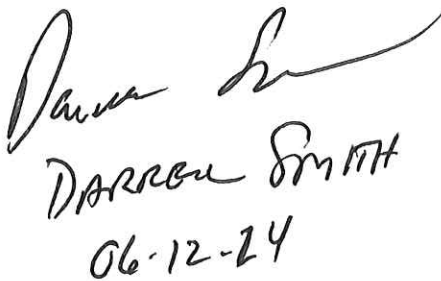 Darren Sm
DARREN SMITH
06-12-24